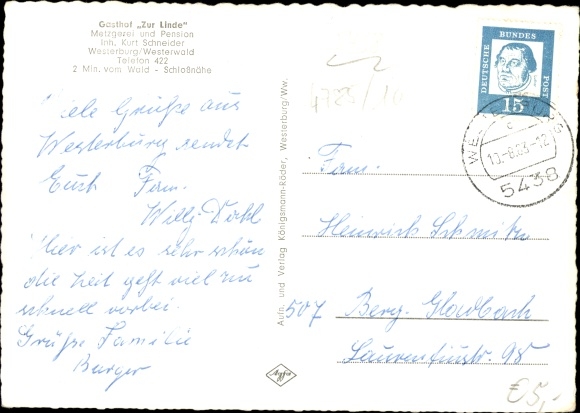 Gasthof „Zur Linde"
Metzgerei und Pension
Inh. Kurt Schneider
Westerburg/Westerwald
Telefon 422
2 Min. vom Wald - Schloßnähe
Viele Grüße aus
Westerburg sendet
Euch Fam.
Willy
Hier ist es sehr schön
die Zeit geht viel zu
schnell vorbei.
Grüße Familie
Barger
Aufn. und Verlag Königsmann-Röder, Westerburg/Ww.
Agfa
4785/10
DEUTSCHE BUNDES POST
15
WESTERBURG
c
10.-8.63-12
5438
Fam.
Heinrich Schmitz
507 Berg. Gladbach
Laurentiusstr. 98
€5,-